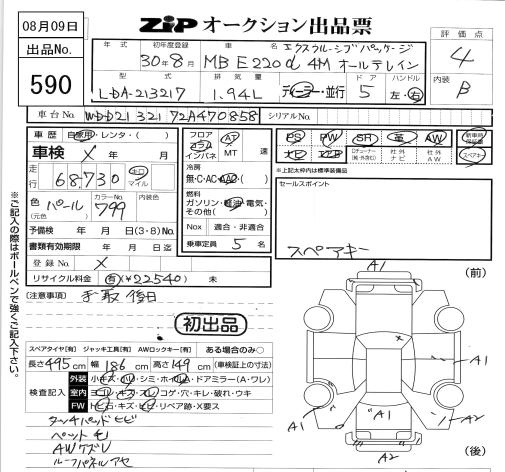 08月09日
出品No.
590
ZIP オークション出品票
評価点
4
内装
B
年式 初年度登録 車名 エクスクルーシブパッケージ
30年8月 MB E220d 4M オールテレイン
型式 排気量 ドア ハンドル
LDA-213217 1.94L ディーラー・並行 5 左・右
車台No. WDD2132172A470858 シリアルNo.
車歴 自家用・レンタ・( )
車検 X 年 月
走行 68,730 キロ マイル
色(元色) パール カラーNo. 799 内装色
予備検 年 月 日(3・8)No.
書類有効期限 年 月 日迄
登録No. X
リサイクル料金 有(¥22540) 未
フロア コラム インパネ AT MT 速
冷房 無・C・AC・AAC・( )
燃料 ガソリン・軽油・電気・その他( )
Nox 適合・非適合
乗車定員 5 名
PS PW SR 革 AW 新車時保証書
ナビ エアB Dチューナー(純・外含む) 社外ナビ 社外AW スペアキー
※上記太枠内は標準装備品
セールスポイント
スペアキー
(注意事項) 手取 後日
初出品
※ご記入の際はボールペンで強くご記入下さい。
スペアタイヤ[有] ジャッキ工具[有] AWロックキー[有] ある場合のみ○
長さ 495cm 幅 186cm 高さ 149cm (車検証上の寸法)
検査記入
外装 小キズ・凹・シミ・ホイルA・ドアミラー(A・ワレ)
室内 ヨゴレ・キズ・スレ・コゲ・穴・キレ・破れ・ウキ
FW トビ石・キズ・ヒビ・リペア跡・X要ス
タッチパッドヒビ
ペットモ
AWケズレ
ルーフパネルアセ
(前)
A1
A1
A1
A2
A1
A2
(後)